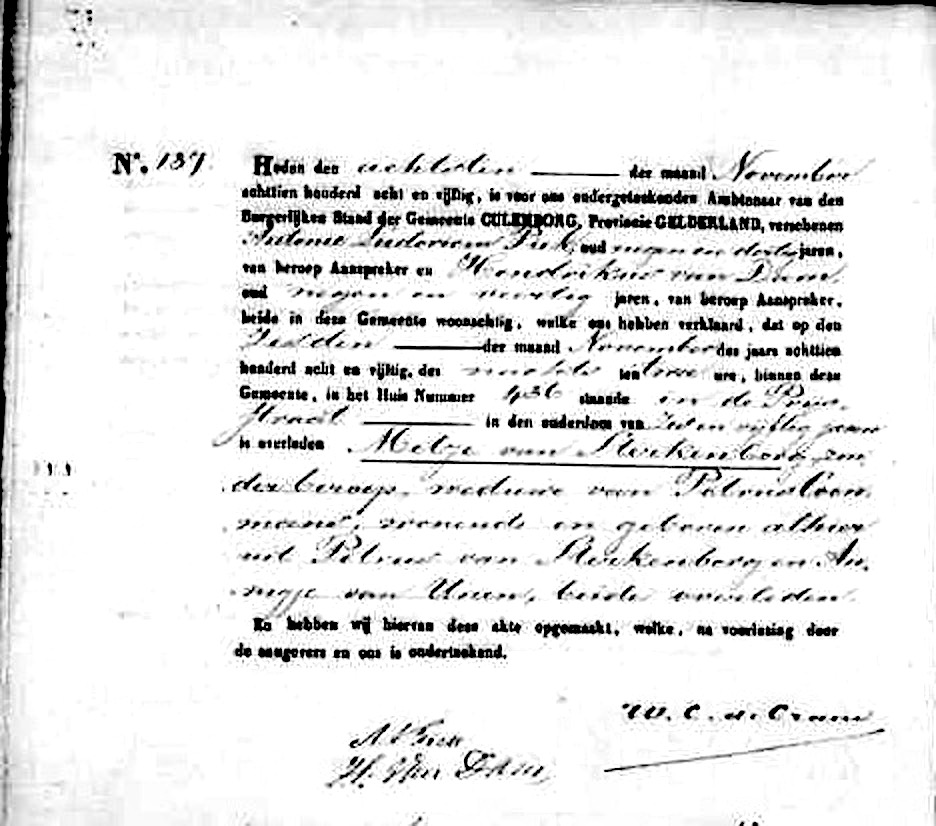 N°. 137 Heden den achtsten der maand November
achttien honderd acht en vijftig, is voor ons ondergeteekenden Ambtenaar van den
Burgerlijken Stand der Gemeente CULEMBORG, Provincie GELDERLAND, verschenen
Antonie Ludovicus oud negen en dertig jaren,
van beroep Aanspreker en Hendrikus van Dam
oud negen en veertig jaren, van beroep Aanspreker,
beide in deze Gemeente woonachtig, welke ons hebben verklaard, dat op den
Zesden der maand November des jaars achttien
honderd acht en vijftig, des nachts ten twee ure, binnen deze
Gemeente, in het Huis Nummer 436 staande in de
straat in den ouderdom van en vijftig jaren
is overleden Metje van Sterkenburg, zon
der beroep, weduwe van Petrus Coen
mans, wonende en geboren alhier
uit Petrus van Sterkenburg en An
nigje van Uven, beide overleden.
En hebben wij hiervan deze akte opgemaakt, welke, na voorlezing door
de aangevers en ons is onderteekend.
W. C. de Crane
H. van Dam